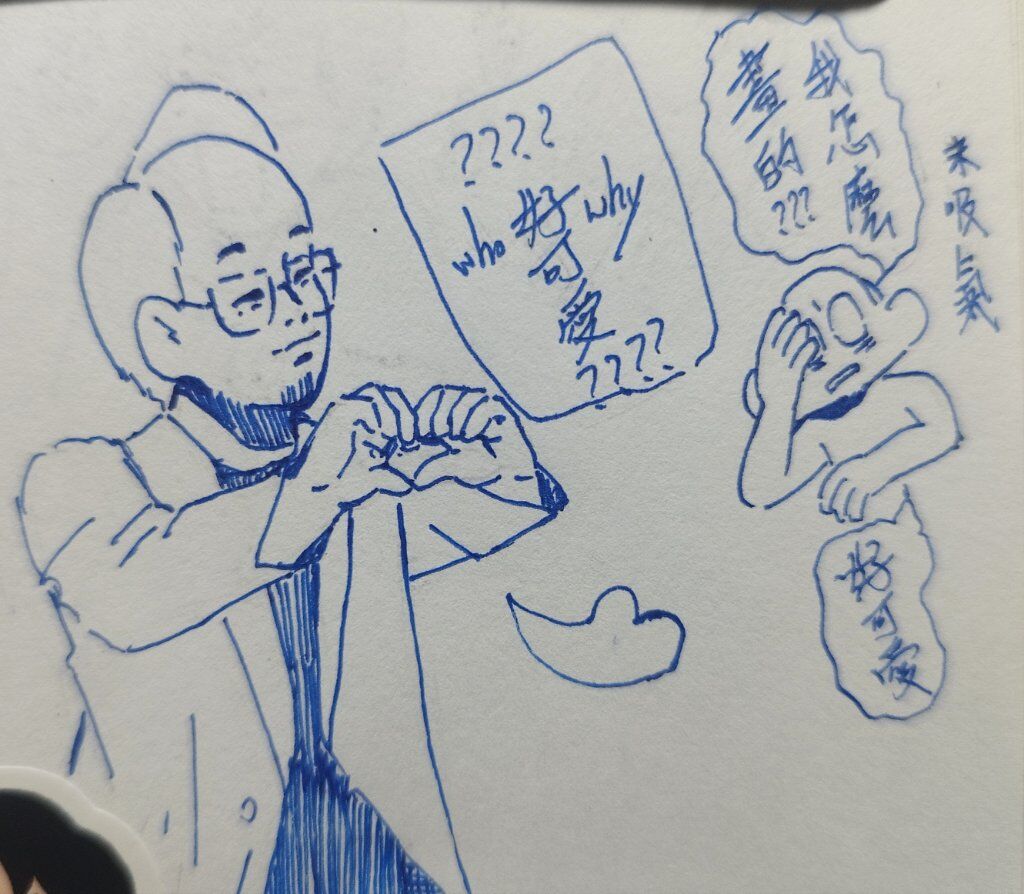 ????
who 好可愛 why
????
我怎麼
畫的???
吸氣
好可愛